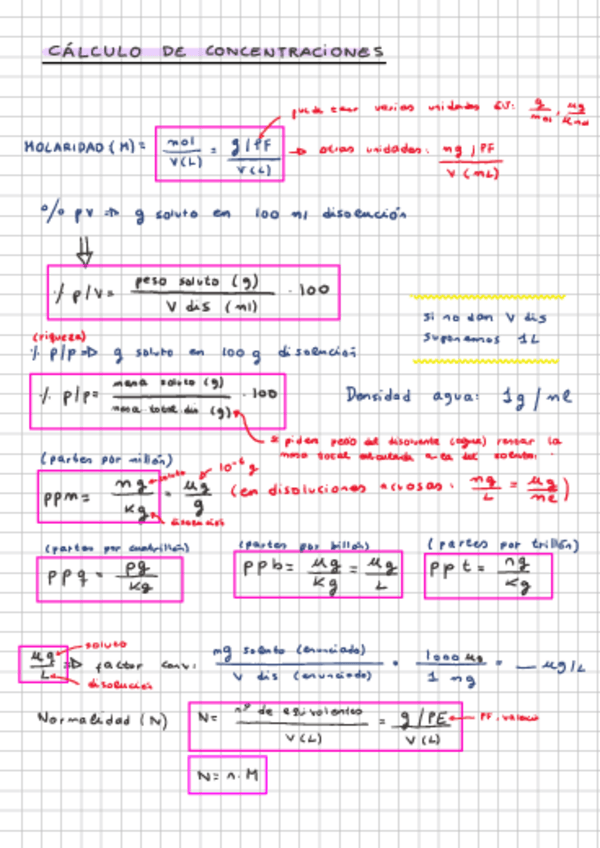 CÁLCULO DE CONCENTRACIONES
puede tener varias unidades EJ: g/mol, µg/µmol
MOLARIDAD (M) = mol / V(L) = g/PF / V(L) → otras unidades: mg/PF / V(mL)
% pv ⇒ g soluto en 100 ml disolución
⇓
% p/v = peso soluto (g) / V dis (ml) · 100
si no dan V dis
suponemos 1L
(riqueza)
% p/p ⇒ g soluto en 100 g disolución
% p/p = masa soluto (g) / masa total dis (g) · 100
Densidad agua: 1g/ml
si piden peso del disolvente (agua) restar la
masa total calculada a la del soluto.
(partes por millón)
ppm = mg / kg = µg / g (en disoluciones acuosas: mg/L = µg/mL)
soluto
disolución
10⁻⁶ g
(partes por cuatrillón) (partes por billón) (partes por trillón)
ppq = pg / kg
ppb = µg / kg = µg / L
ppt = ng / kg
µg / L ⇒ factor conv: mg soluto (enunciado) / V dis (enunciado) · 1000 µg / 1 mg = __ µg/L
soluto
disolución
Normalidad (N) N = nº de equivalentes / V(L) = g/PE / V(L) ← PF. valencia
N = n · M